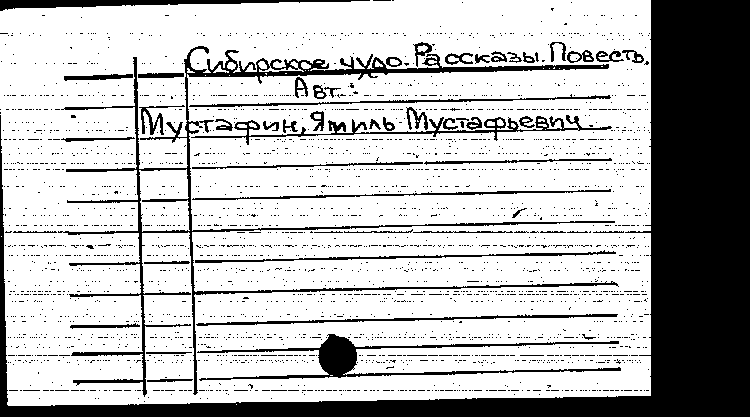 Сибирское чудо. Рассказы. Повесть.
Авт.:
Мустафин, Ямиль Мустафьевич